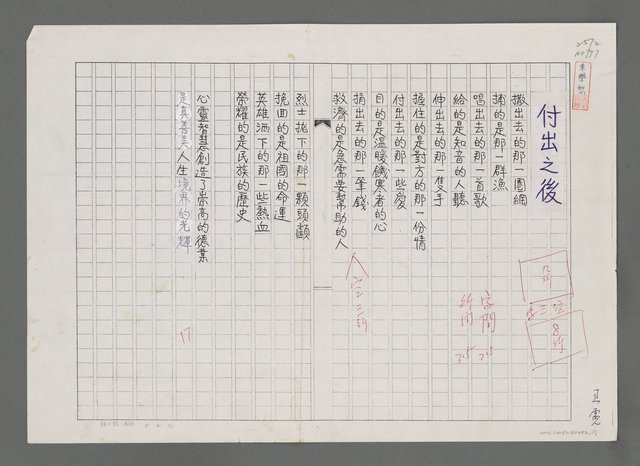 付出之後
撒出去的那一圈網
捕的是那一群漁
唱出去的那一首歌
給的是知音的人聽
伸出去的那一隻手
握住的是對方的那一份情
付出去的那一些愛
目的是溫暖饑寒者的心
捐出去的那一筆錢
救濟的是急需要幫助的人
烈士拋下的那一顆頭顱
挽回的是祖國的命運
英雄洒下的那一些熱血
榮耀的是民族的歷史
心靈智慧創造了崇高的德業
是真善美人生境界的光輝
字間 25
行間 35
8行
17